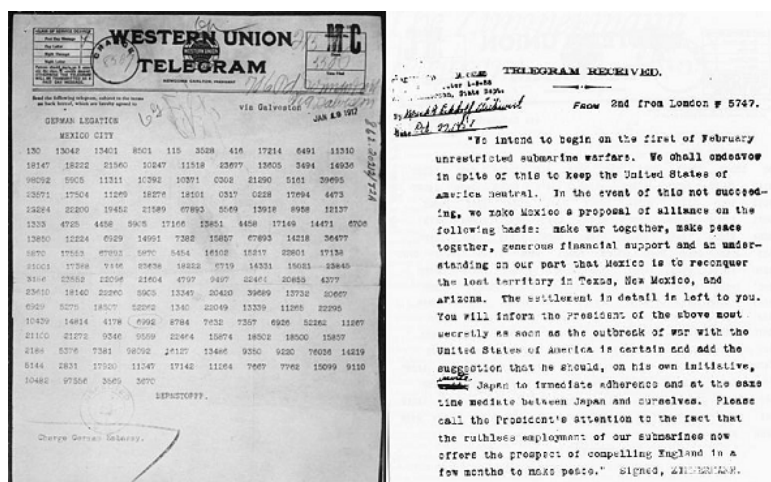 WESTERN UNION
TELEGRAM
NEWCOMB CARLTON, PRESIDENT
Send the following telegram, subject to the terms
on back hereof, which are hereby agreed to
via Galveston
JAN 19 1917
GERMAN LEGATION
MEXICO CITY
130 13042 13401 8501 115 3528 416 17214 6491 11310
18147 18222 21560 10247 11518 23677 13605 3494 14936
98092 5905 11311 10392 10371 0302 21290 5161 39695
23571 17504 11269 18276 18101 0317 0228 17694 4473
22284 22200 19452 21589 67893 5569 13918 8958 12137
1333 4725 4458 5905 17166 13851 4458 17149 14471 6706
13850 12224 6929 14991 7382 15857 67893 14218 36477
5870 17553 67893 5870 5454 16102 15217 22801 17138
21001 17388 7446 23638 18222 6719 14331 15021 23845
3156 23552 22096 21604 4797 9497 22464 20855 4377
23610 18140 22260 5905 13347 20420 39689 13732 20667
6929 5275 18507 52262 1340 22049 13339 11265 22295
10439 14814 4178 6992 8784 7632 7357 6926 52262 11267
21100 21272 9346 9559 22464 15874 18502 18500 15857
2188 5376 7381 98092 16127 13486 9350 9220 76036 14219
5144 2831 17920 11347 17142 11264 7667 7762 15099 9110
10482 97556 3569 3670
BERNSTORFF.
Charge German Embassy.
TELEGRAM RECEIVED.
FROM 2nd from London # 5747.
"We intend to begin on the first of February
unrestricted submarine warfare. We shall endeavor
in spite of this to keep the United States of
America neutral. In the event of this not succeed-
ing, we make Mexico a proposal of alliance on the
following basis: make war together, make peace
together, generous financial support and an under-
standing on our part that Mexico is to reconquer
the lost territory in Texas, New Mexico, and
Arizona. The settlement in detail is left to you.
You will inform the President of the above most
secretly as soon as the outbreak of war with the
United States of America is certain and add the
suggestion that he should, on his own initiative,
Japan to immediate adherence and at the same
time mediate between Japan and ourselves. Please
call the President's attention to the fact that
the ruthless employment of our submarines now
offers the prospect of compelling England in a
few months to make peace." Signed, ZIMMERMANN.